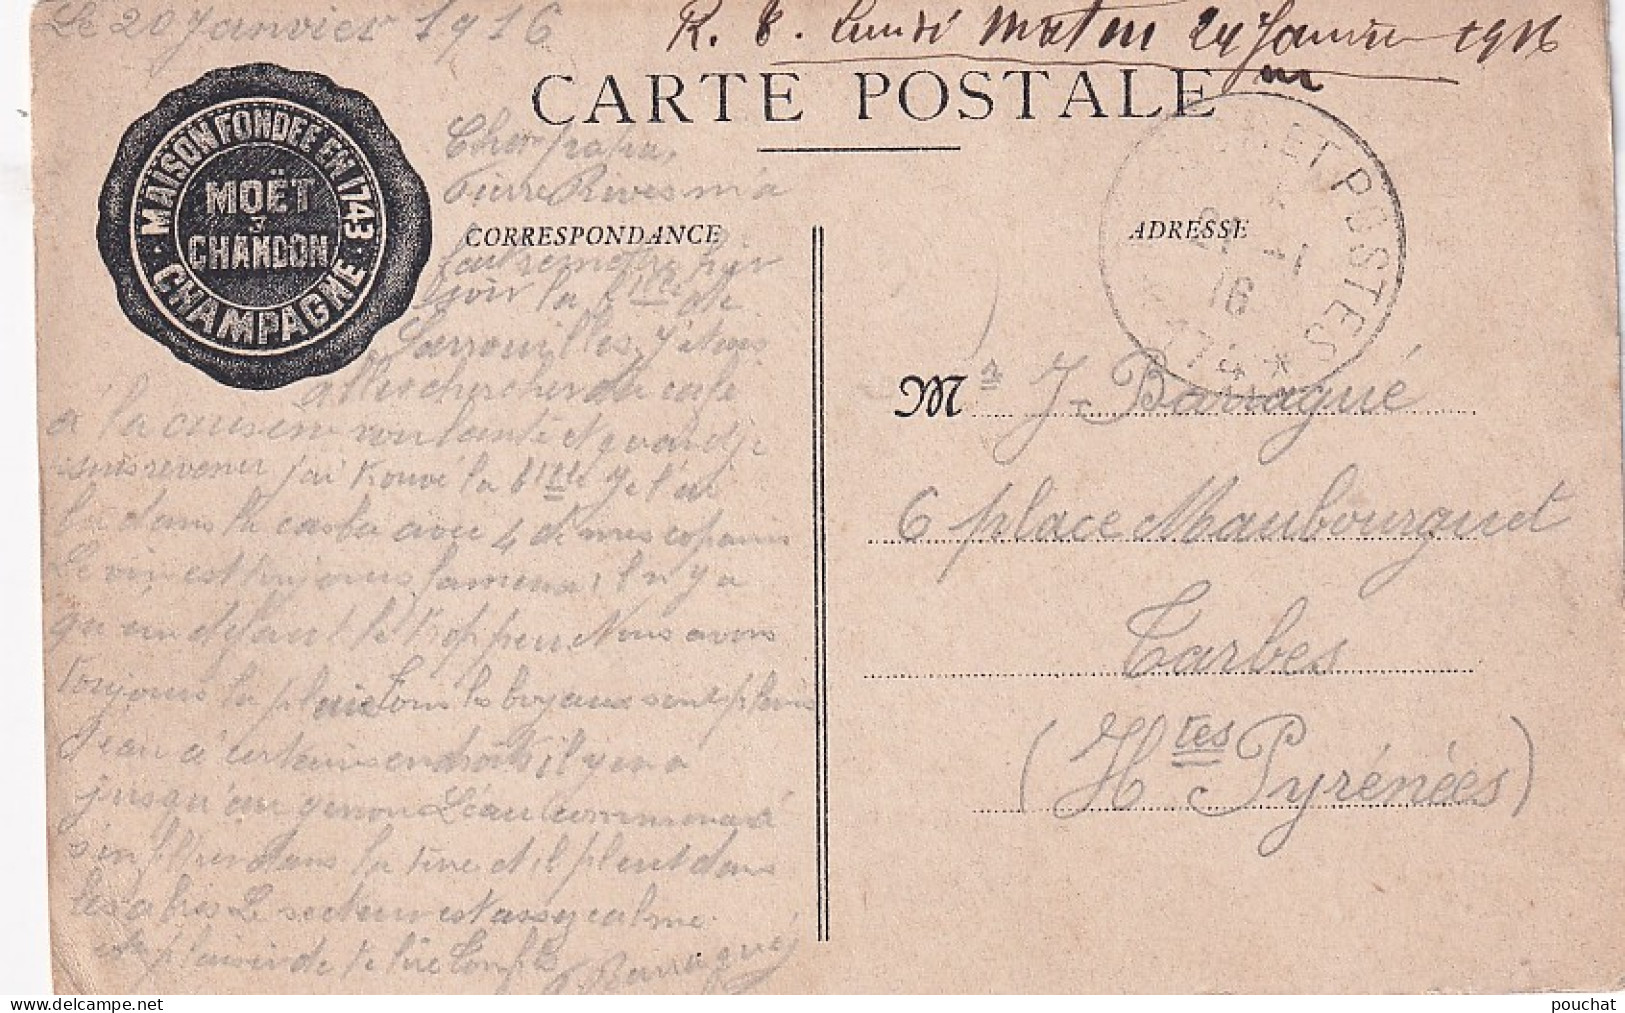 Le 20 Janvier 1916
R. Lundi Matin 24 Janvier 1916
CARTE POSTALE
MAISON FONDÉE EN 1743
MOËT & CHANDON
CHAMPAGNE
CORRESPONDANCE
ADRESSE
Cher papa,
Pierre Rives m'a
fait remettre hier
soir la Blle de
Larrouilles. J'étais
aller chercher du café
à la cuisine roulante et quand je
suis revenu j'ai trouvé la Blle Je l'ai
bu dans la casba avec 4 de mes copains
Le vin est toujours fameux, il n'y a
qu'un défaut le trop peu Nous avons
toujours la pluie Tous les boyaux sont pleins
d'eau à certains endroits, il y en a
jusqu'au genou L'eau commence à
s'infiltrer dans la terre et il pleut dans
les abris Le secteur est assez calme
plaisir de te lire
Barragué
TRÉSOR ET POSTES
21 -1
16
* 174 *
Mr J. Barragué
6 place Maubourguet
Tarbes
(Htes Pyrénées)
pouchat